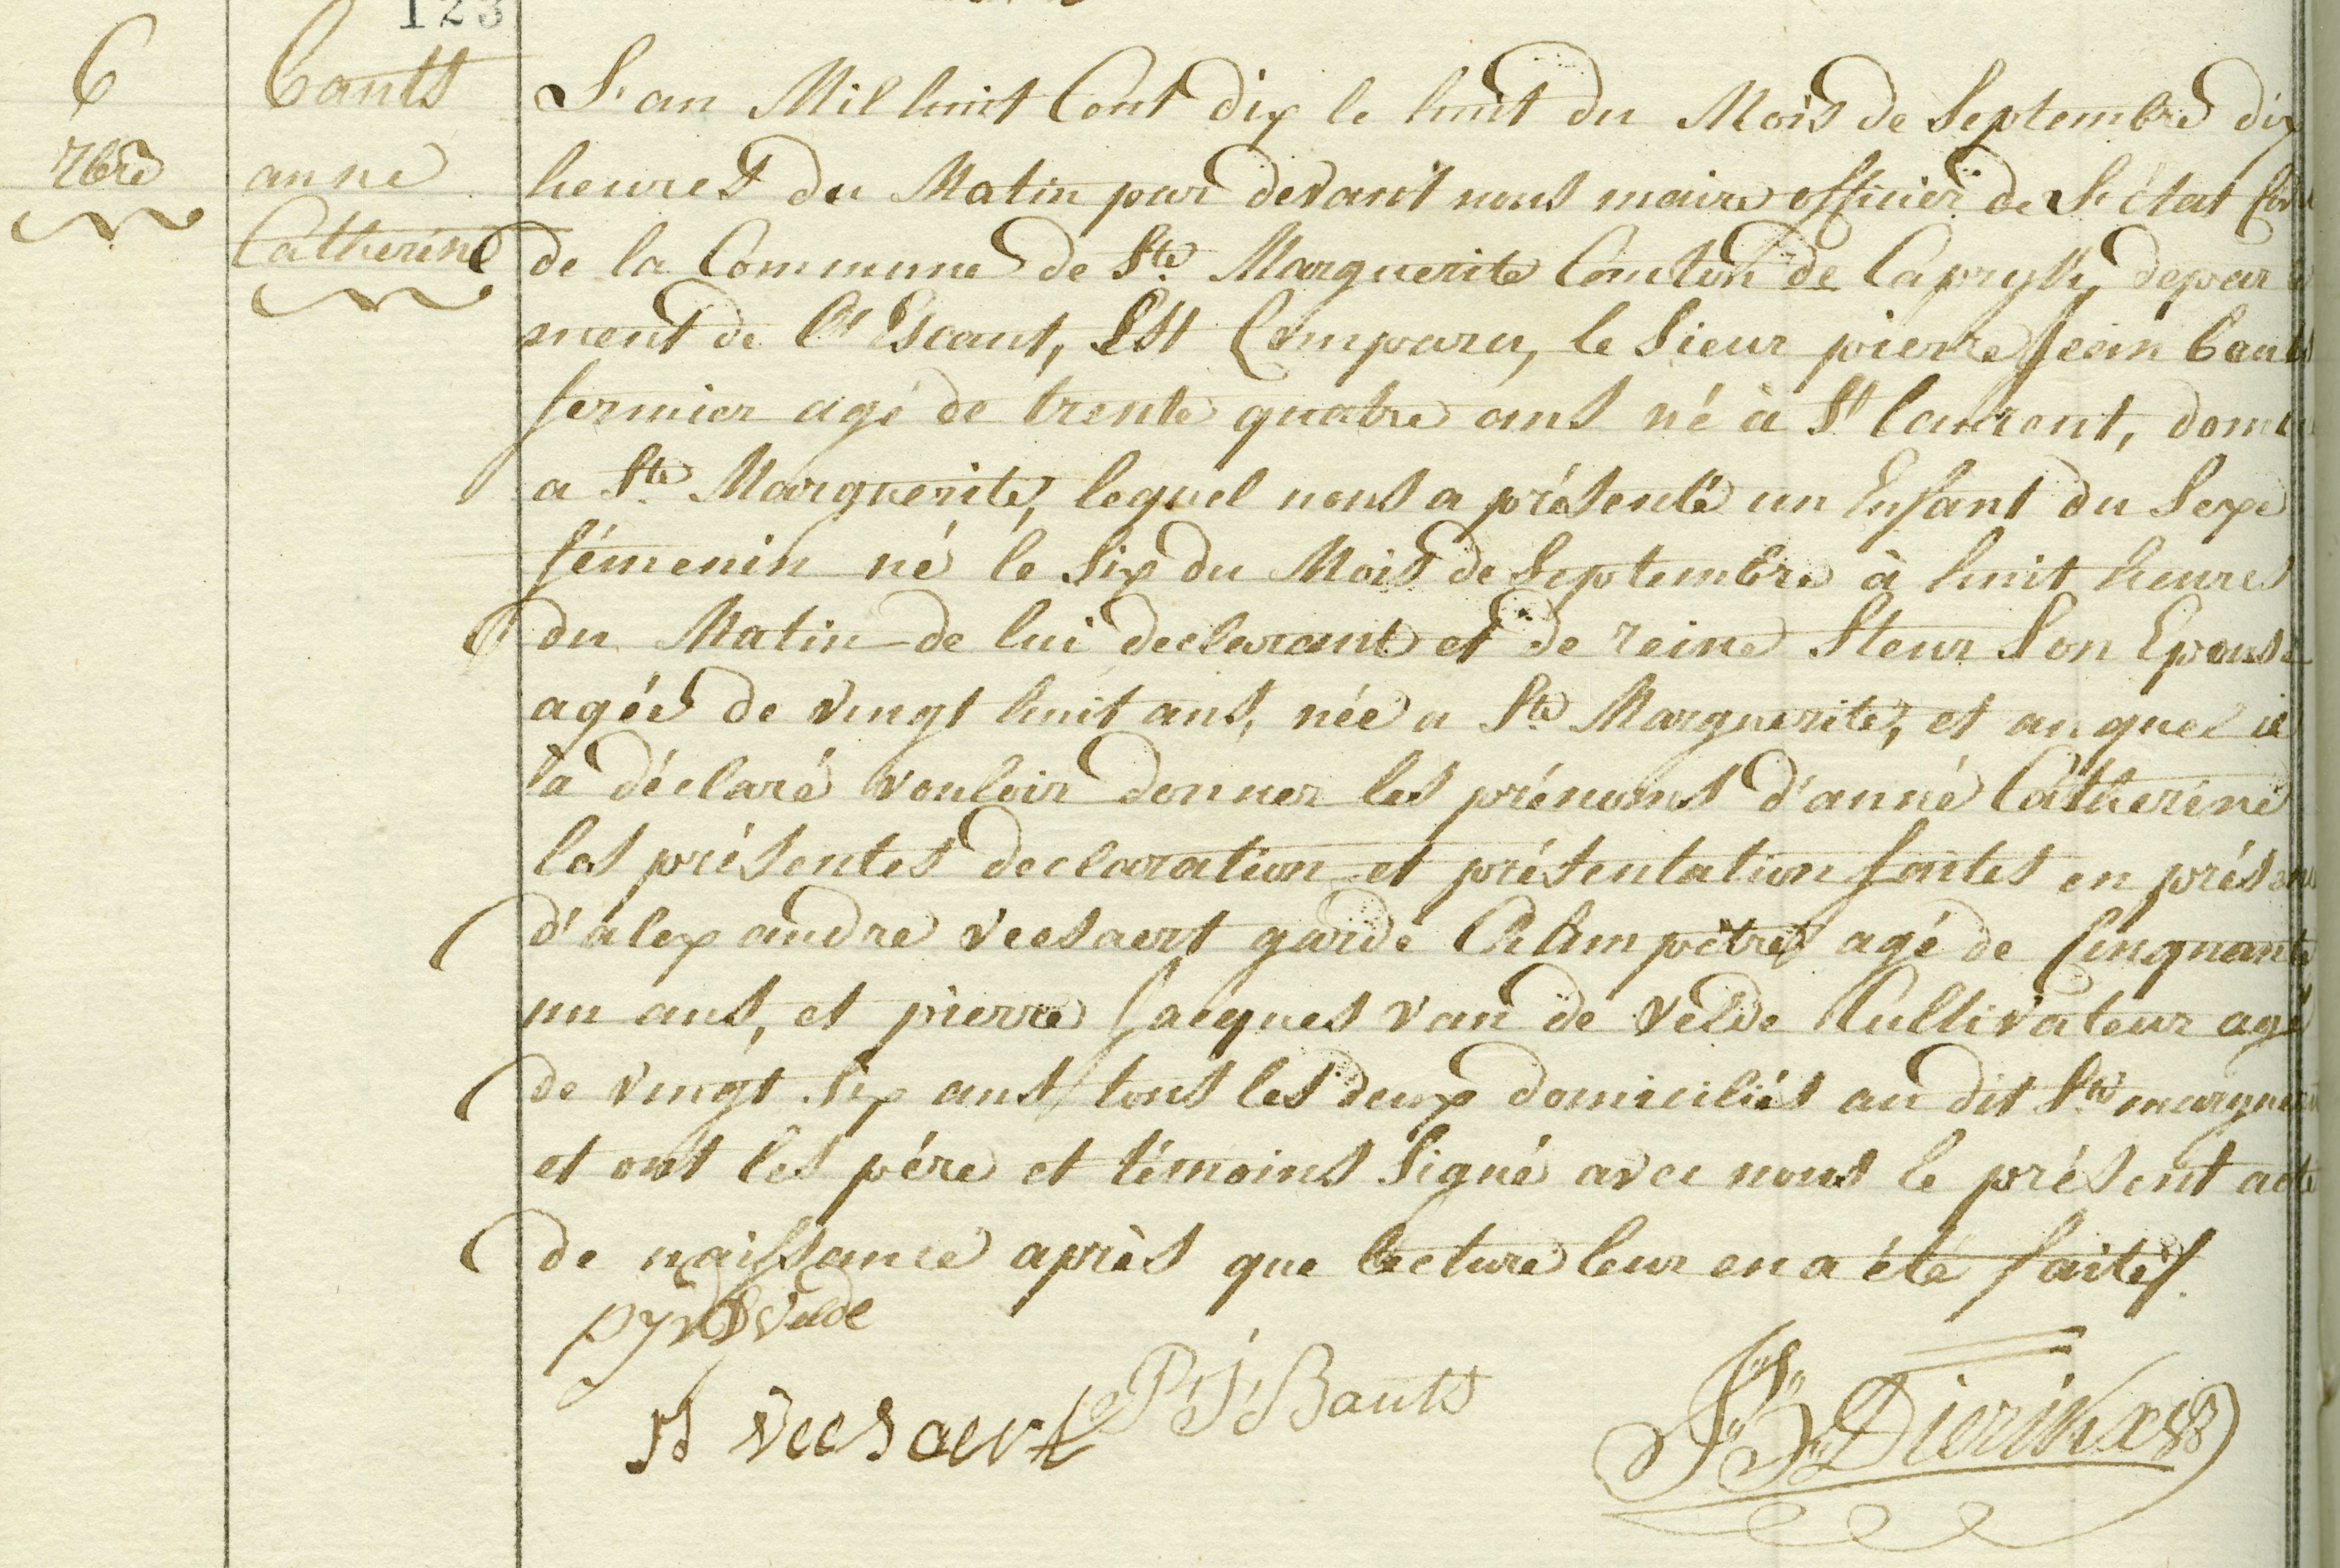 123
6
7bre
Bauts
anne
Catherine
L'an Mil huit Cent dix le huit du Mois de Septembre dix
heures du Matin par devant nous maire officier de L'état Civil
de la Commune de Ste Marguerite Canton de Capryk, depar
ment de l'Escaut, Est Comparu, le Sieur pierre Jean Bauts
fermier agé de trente quatre ans né à St Laurent, domi
a Ste Marguerite, lequel nous a présenté un Enfant du Sexe
fémenin né le Six du Mois de Septembre à huit heures
du Matin de lui declarant et de reine Steur Son Epouse
agée de vingt huit ans, née a Ste Marguerite, et auquel il
a déclaré vouloir donner les prénoms d'anne Catherine
les présentes declaration et présentation faites en présen
d'alexandre veesaert garde Champètre agé de Cinquante
un ans, et pierre Jacques van de velde Cultivateur agé
de vingt six ans tous les deux domiciliés au dit Ste margueri
et ont les pére et témoins Signé avec nous le présent acte
de naissance après que lecture leur en a été faite.
pj vd Velde
A veesaert
P: J: Bauts
JB Dierikx